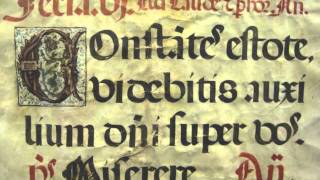 Feria.
COnstātes estote,
videbitis auxi
lium dñi super vos.
ps. Miserere. Añ.